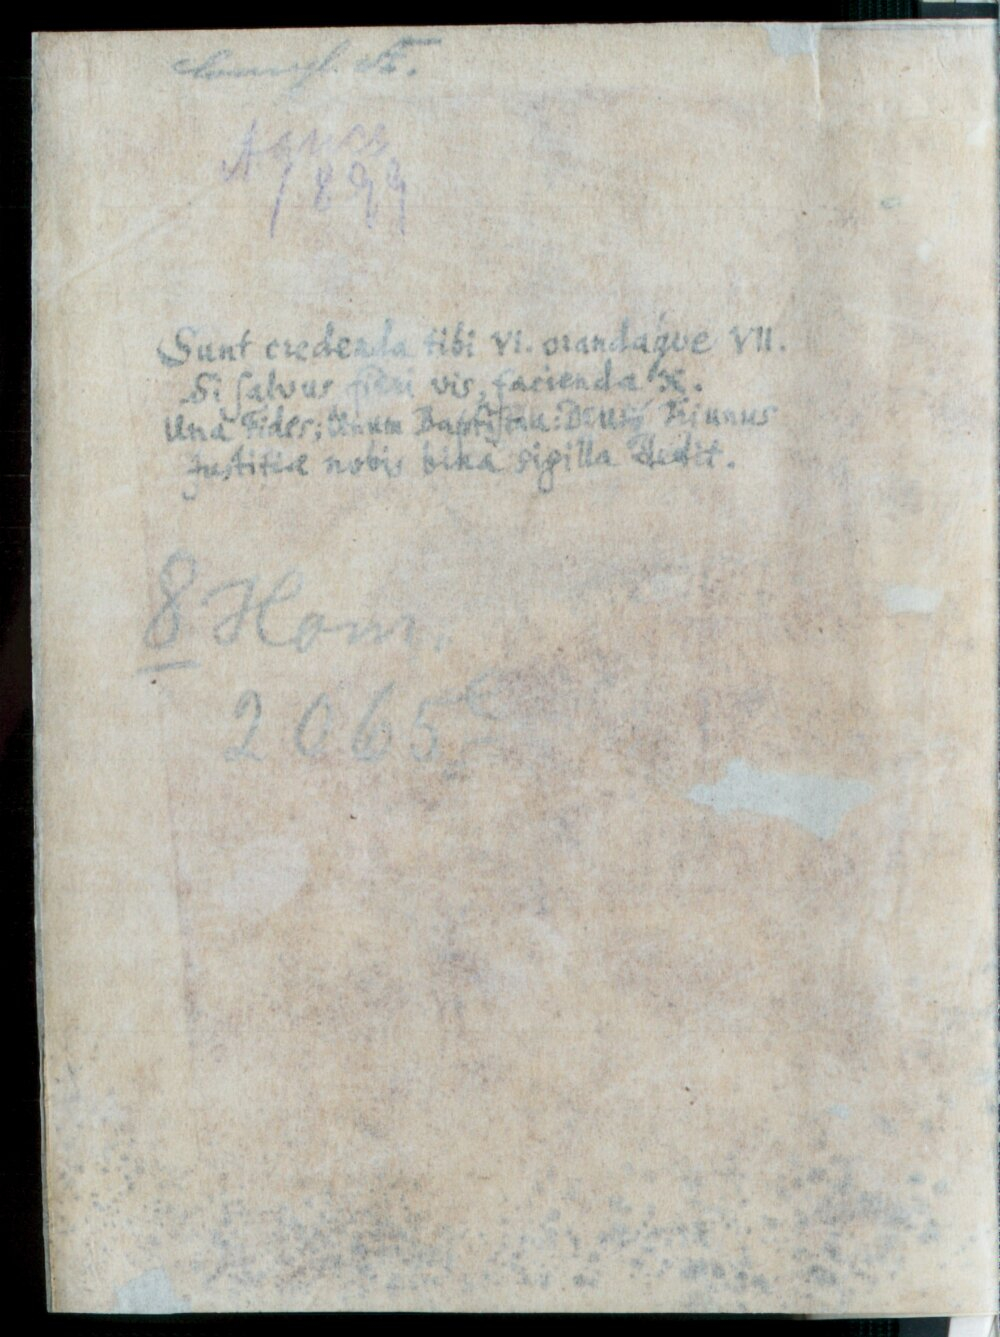 1899
Sunt credenda tibi VI. orandaque VII.
Si salvus fieri vis, facienda X.
Una Fides; Unum Baptisma: Deus Triunus
Justitiæ nobis bina sigilla Dedit.
8 Hom.
2065